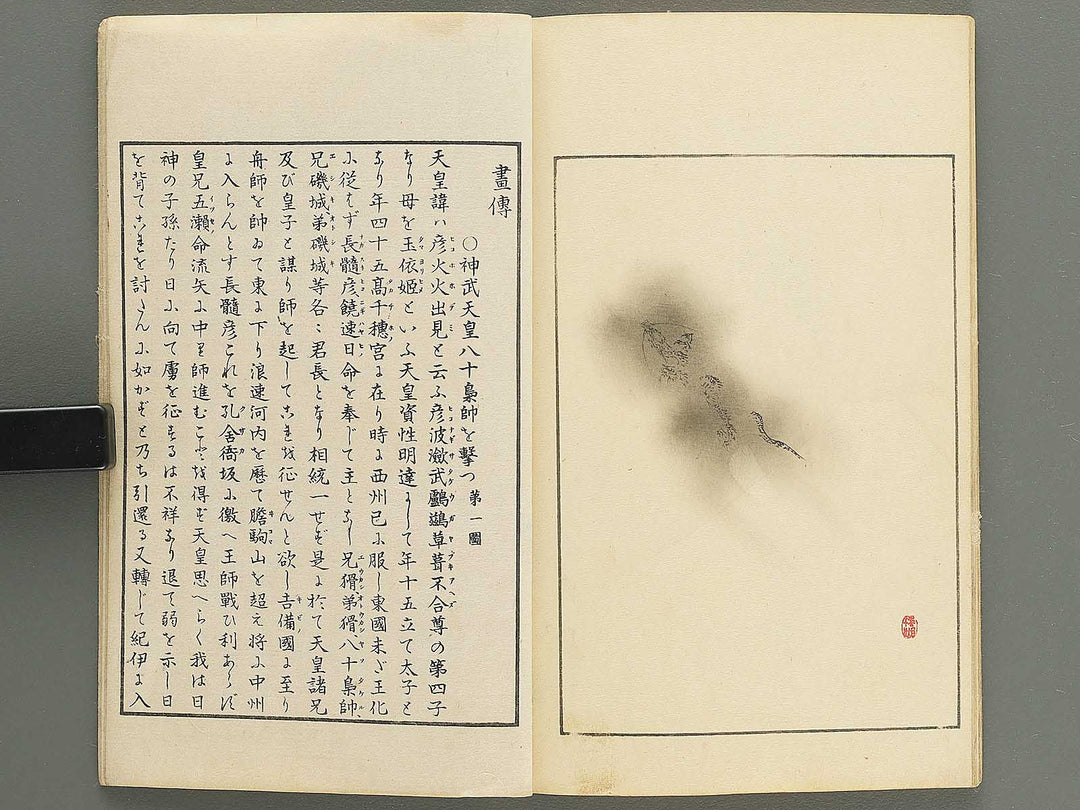 畫傳
○神武天皇八十梟帥を擊つ 第一圖
天皇諱ハ彦火火出見と云ふ彦波瀲武鸕鶿草葺不合尊の第四子
なり母を玉依姬といふ天皇資性明達にして年十五立て太子と
なり年四十五髙千穗宮に在り時に西州已に服し東國未だ王化
に從はず長髓彦饒速日命を奉じて主となし兄猾弟猾八十梟帥
兄磯城弟磯城等各〻君長となり相統一せず是に於て天皇諸兄
及び皇子と謀り師を起してこれを征せんと欲し吉備國に至り
舟師を帥ゐて東に下り浪速河内を歷て膽駒山を超え将に中州
に入らんとす長髓彦これを孔舍衙坂に徼へ王師戰ひ利あらず
皇兄五瀬命流矢に中り師進むことを得ず天皇思へらく我は日
神の子孫たり日に向て虜を征するは不祥なり退て弱を示し日
を背てこれを討たんに如かずと乃ち引還る又轉じて紀伊に入